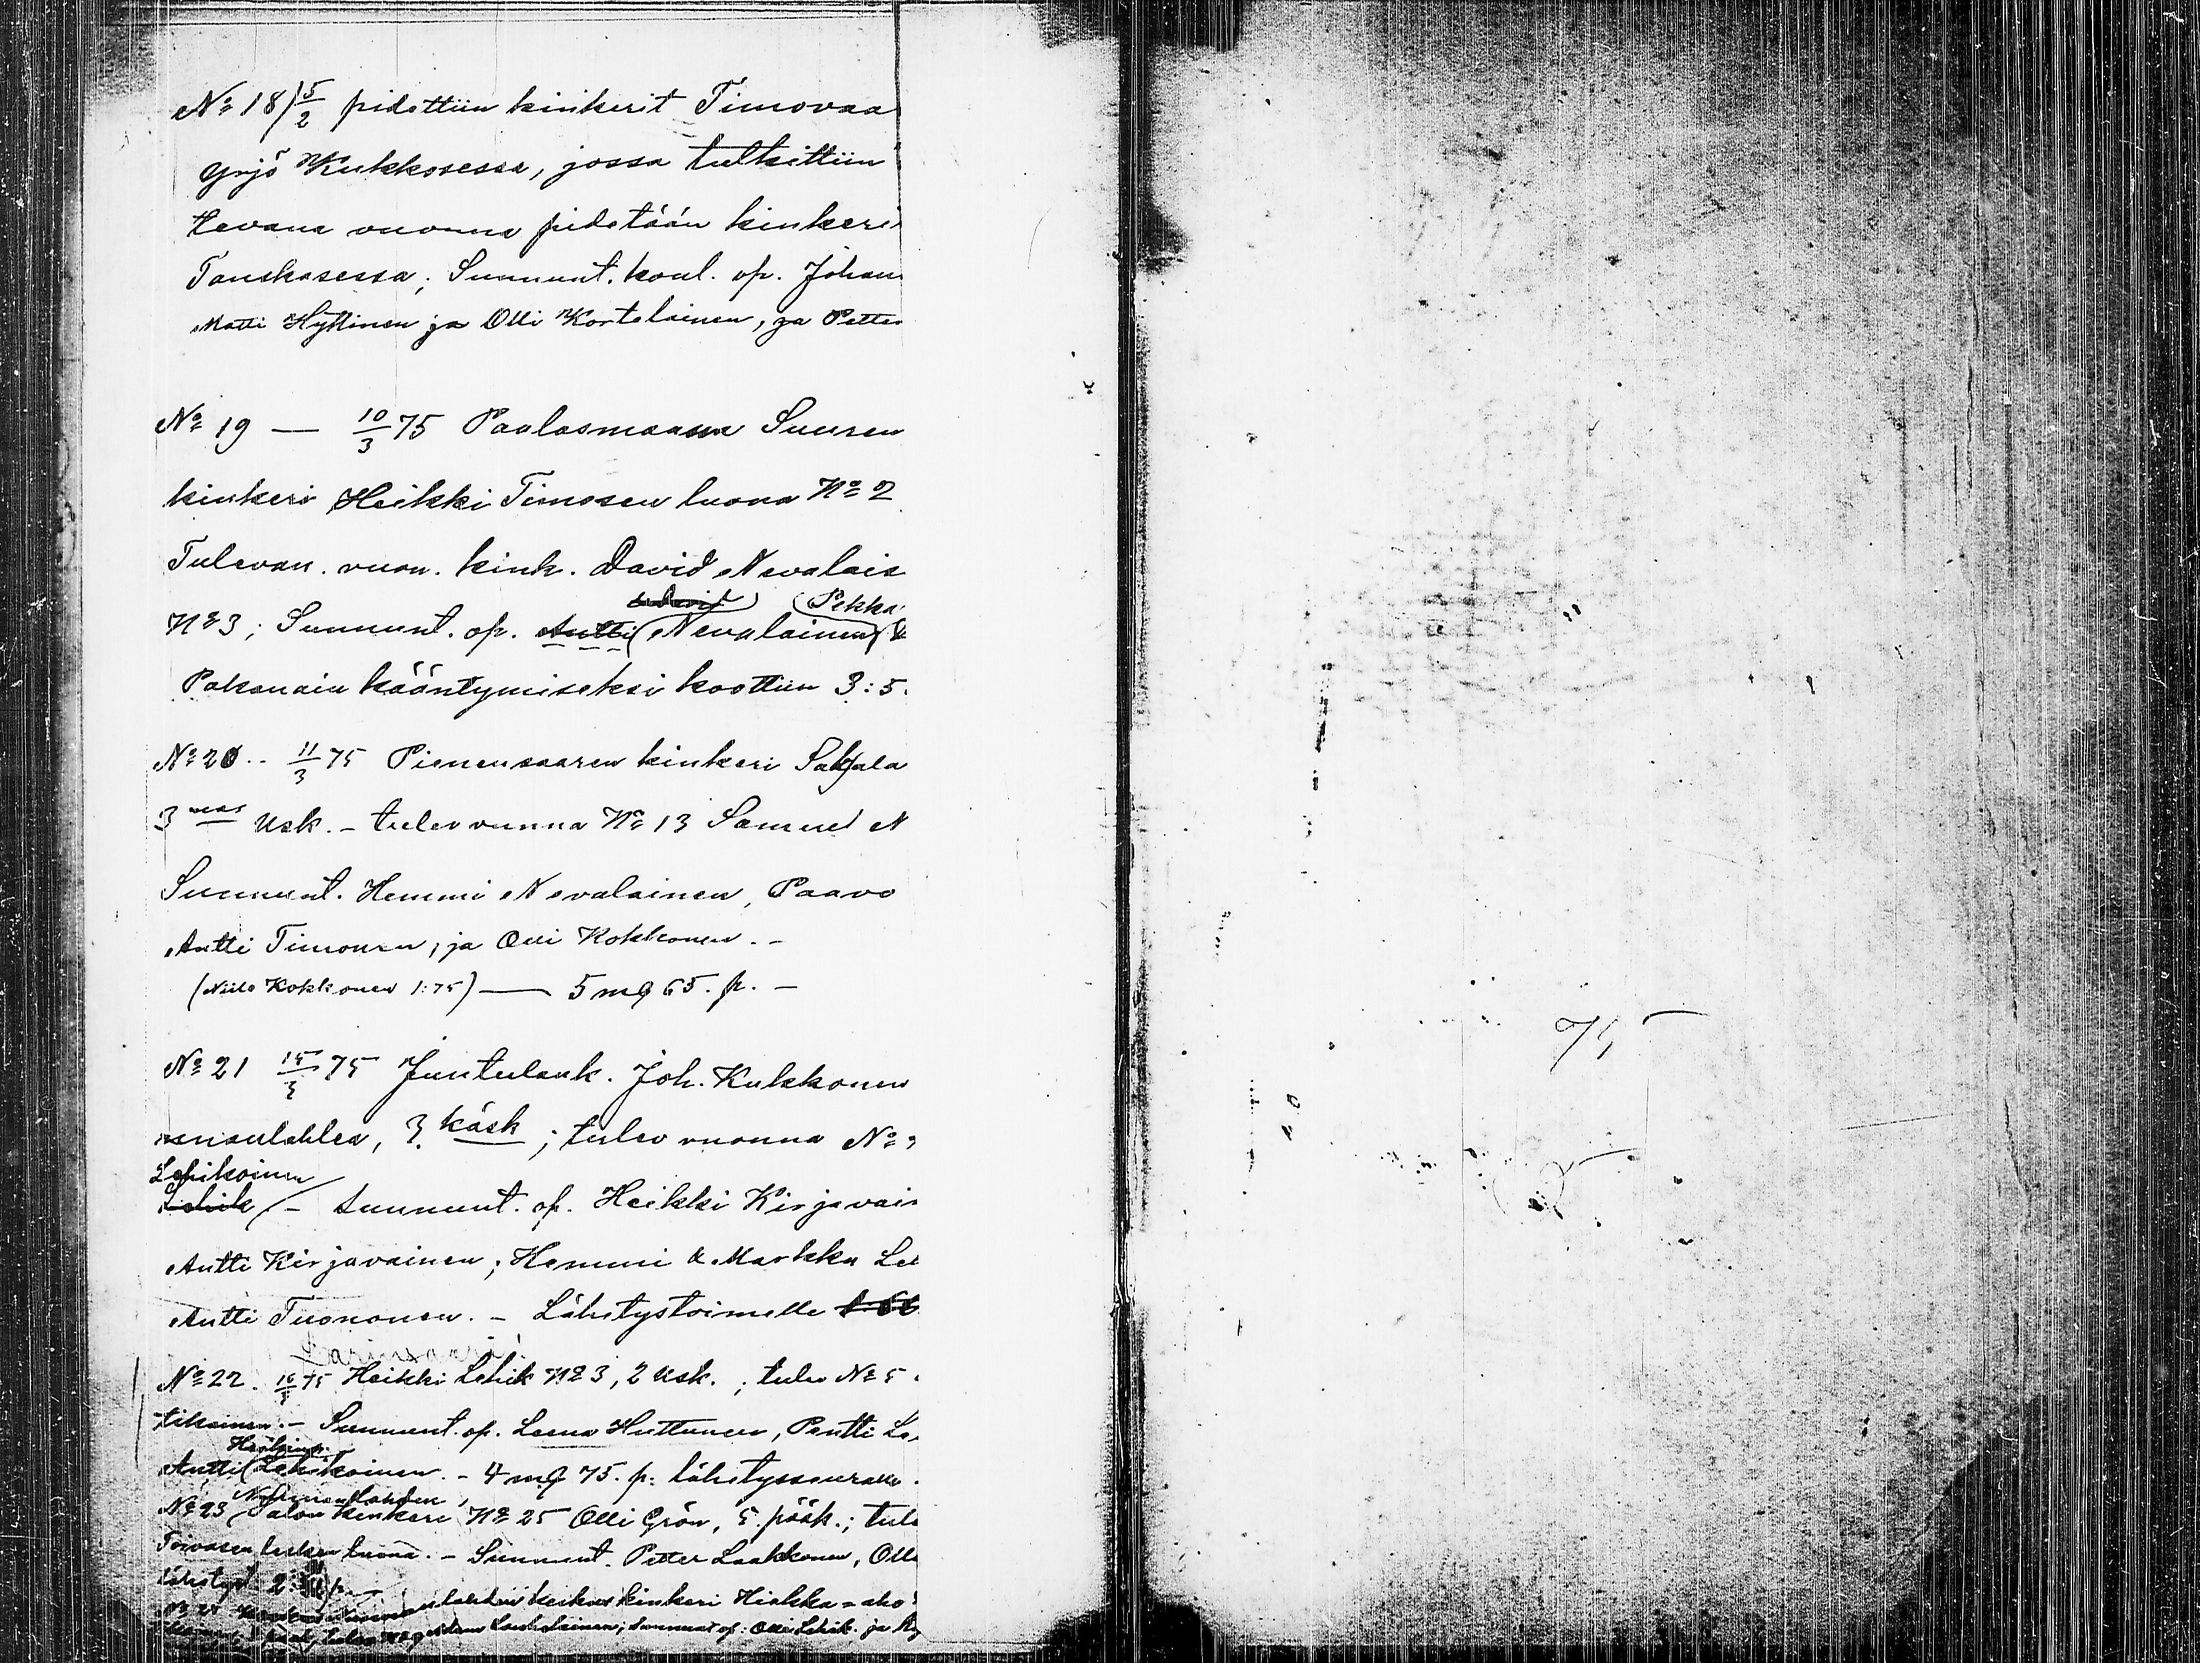 No 18) 5/2 pidettiin kinkerit Timovaa
Yrjö Kukkosessa, jossa tutkittiin
levana vuonna pidetään kinkeri
Tanskasessa; Sunnunt. koul. op. Johan
Matti Hyttinen ja Olli Kortelainen, ja Petter
No 19 — 10/3 75 Paalasmaassa Suuren
kinkeri Heikki Timosen luona No 2
Tulevan. vuon. kink. David Nevalais
Pekka
No 3; Sunnunt. op. Antti (Nevalainen)
Pakanain kääntymiseksi koottiin 3:5.
No 20 -- 11/3 75 Pienensaaren kinkeri
3 mas Usk. - tulev vunna No 13 Samuel N
Sunnunt. Hemmi Nevalainen, Paavo
Antti Timonen, ja Olli Kokkonen. -
(Niilo Kokkonen 1:75) — 5 mq 65. p. -
No 21 15/3 75 Juntulank. Joh. Kukkonen
3 käsk; tulev vuonna No
Lehikoinen
Lehik - sunnunt. op. Heikki Kirjavain
Antti Kirjavainen; Hemmi & Markku Le
Antti Tuononen. - Lähetystoimelle
No 22. 16/3 75 Heikki Lehik No 3, 2 Usk. ; tulev No 5
tikainen. - Sunnunt. op. Leena Huttunen, Pentti Le
Antti (Lehikoinen. - 4 mq 75. p. lähetysseuralle
No 23 Salon kinkeri No 25 Olli Grön, 5. pääk.; tule
Toivasen lesken luona. - Sunnunt. Petter Laakkonen, Olli
lähetys 2:
lahden keskus kinkeri Hiekka=aho
sunnunt op: Olli Lehik. ja
75